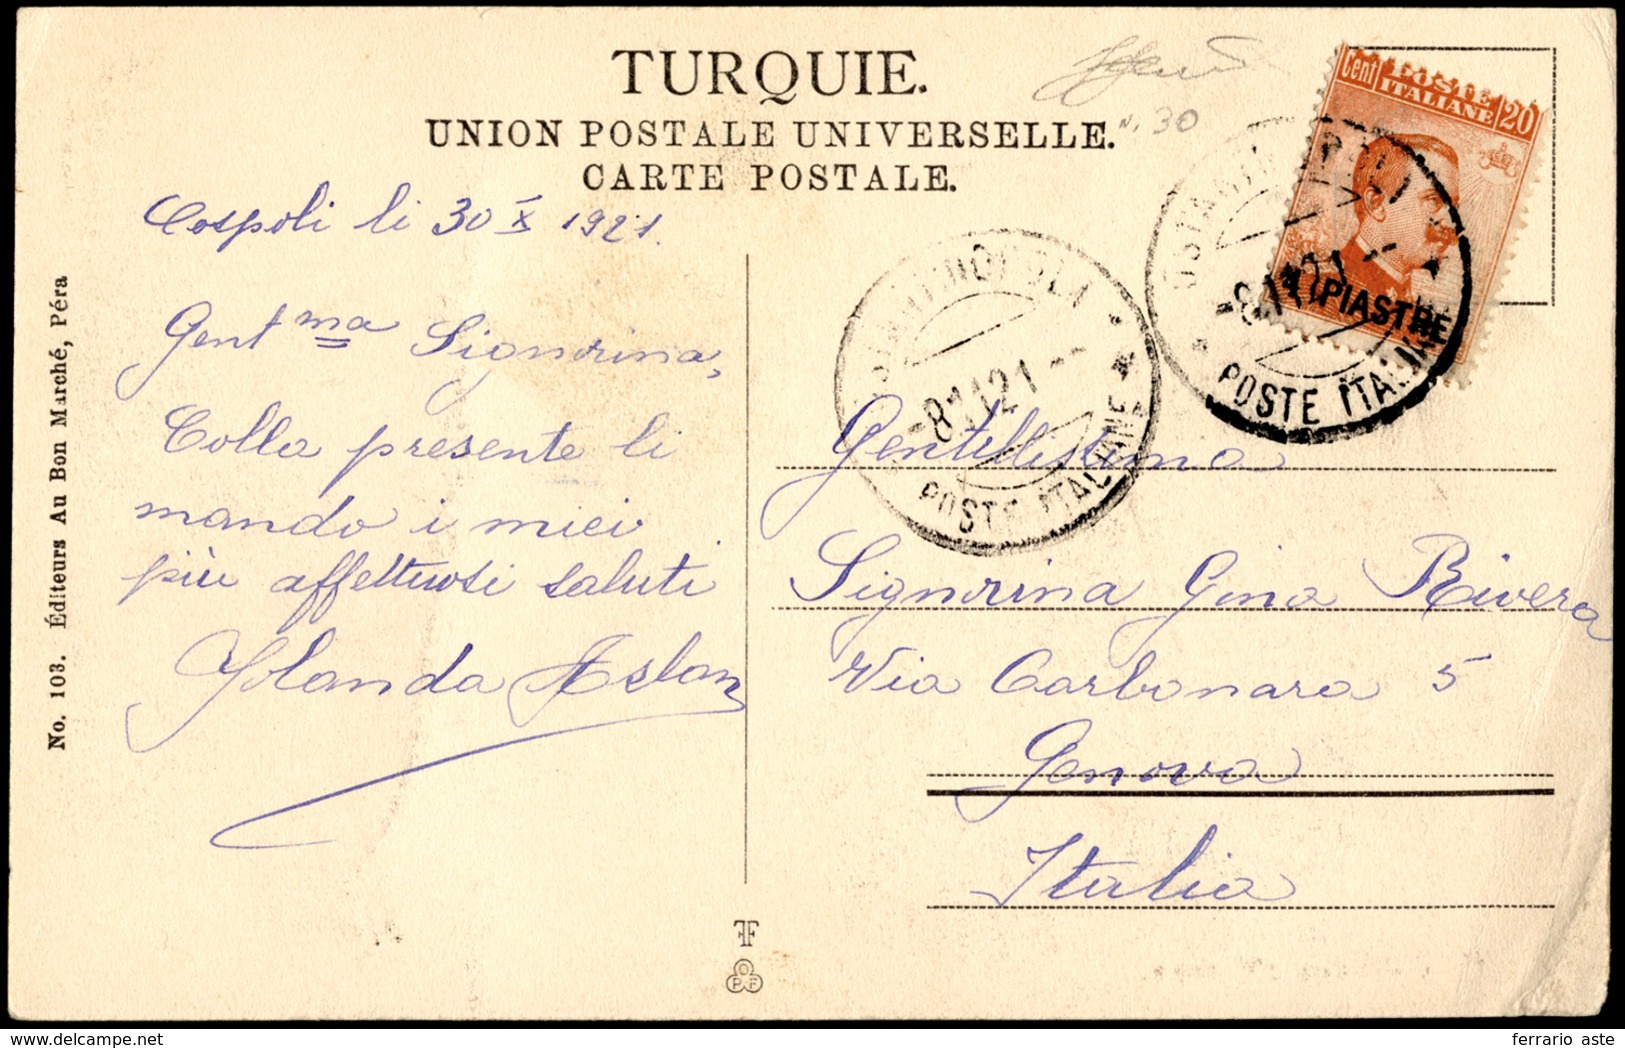 TURQUIE.
UNION POSTALE UNIVERSELLE.
CARTE POSTALE.
N. 30
Cent POSTE ITALIANE 20
PIASTRE
POSTE ITALIANE
-8.11.21--
POSTE ITALIANE
Cospoli li 30 X 1921.
Gent ma Signorina,
Colla presente li
mando i miei
più affettuosi saluti
Yolanda Aslan
Gentillissima
Signorina Gina Rivera
Via Carbonara 5
Genova
Italia
No. 103. Éditeurs Au Bon Marché, Péra
OPF
ferrario aste